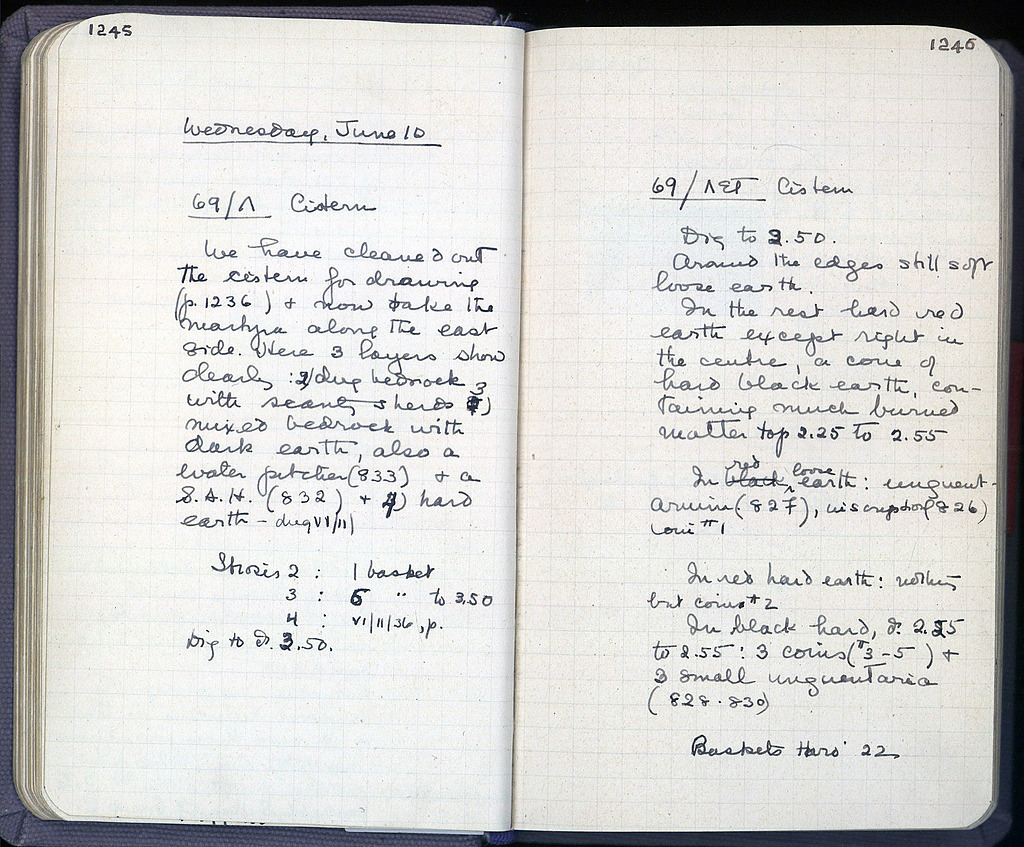 1245
Wednesday, June 10
69/Λ Cistern
We have cleaned out
the cistern for drawing
(p. 1236) + now take the
martyra along the east
side. Here 3 layers show
clearly : 2) dug bedrock
with scanty sherds 3)
mixed bedrock with
dark earth, also a
water pitcher (833) + a
S.A.H. (832) + 4) hard
earth - dug VI/11/
Strosis 2 : 1 basket
3 : 5 " to 3.50
4 : VI/11/36, p.
Dig to d. 3.50.
1246
69/ΛΣΤ Cistern
Dig to 2.50.
Around the edges still soft
loose earth.
In the rest hard red
earth except right in
the centre, a cone of
hard black earth, con-
taining much burned
matter top 2.25 to 2.55
In black red loose earth: unguent-
arium (827), inscription (826)
coin #1
In red hard earth: nothing
but coins #2
In black hard, d. 2.25
to 2.55: 3 coins (#3-5) +
3 small unguentaria
(828-830)
Baskets Hard 22